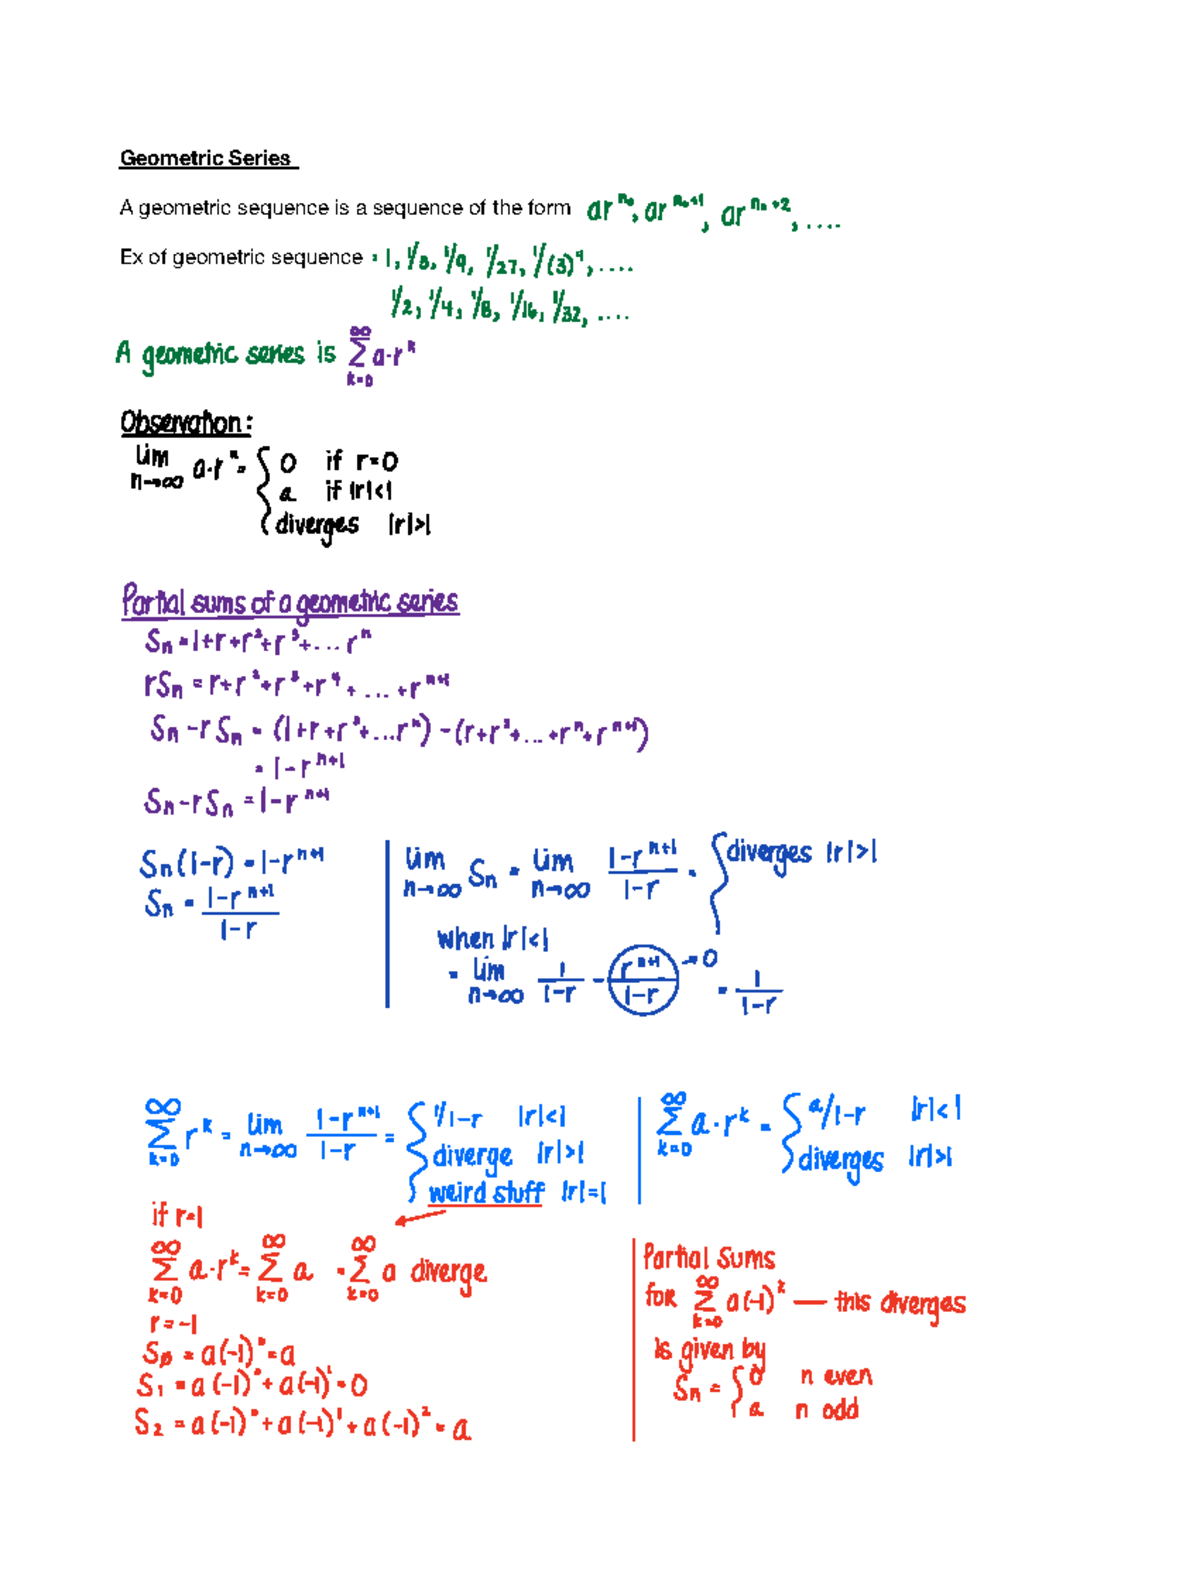 Geometric Series
A geometric sequence is a sequence of the form ar^n₀, ar^n₀+1, ar^n₀+2, ....
Ex of geometric sequence = 1, 1/3, 1/9, 1/27, 1/(3)^4, ....
1/2, 1/4, 1/8, 1/16, 1/32, ....
A geometric series is ∞ Σ k=0 a·r^k
Observation:
lim n→∞ a·r^n = { 0 if r=0
a if |r|<1
diverges |r|>1
Partial sums of a geometric series
Sn = 1+r+r^2+r^3+... r^n
rSn = r+r^2+r^3+r^4+...+r^n+1
Sn - rSn = (1+r+r^2+...r^n) - (r+r^2+...+r^n+r^n+1)
= 1-r^n+1
Sn-rSn = 1-r^n+1
Sn(1-r) = 1-r^n+1
Sn = 1-r^n+1 / 1-r
lim n→∞ Sn = lim n→∞ 1-r^n+1 / 1-r = { diverges |r|>1
when |r|<1
= lim n→∞ 1/1-r - r^n+1 / 1-r → 0 = 1/1-r
∞ Σ k=0 r^k = lim n→∞ 1-r^n+1 / 1-r = { 1/1-r |r|<1
diverge |r|>1
weird stuff |r|=1
∞ Σ k=0 a·r^k = { a/1-r |r|<1
diverges |r|>1
if r=1
∞ Σ k=0 a·r^k = ∞ Σ k=0 a = ∞ Σ k=0 a diverge
r=-1
S0 = a(-1)^0 = a
S1 = a(-1)^0 + a(-1)^1 = 0
S2 = a(-1)^0 + a(-1)^1 + a(-1)^2 = a
Partial Sums
for ∞ Σ k=0 a(-1)^k — this diverges
is given by
Sn = { 0 n even
a n odd